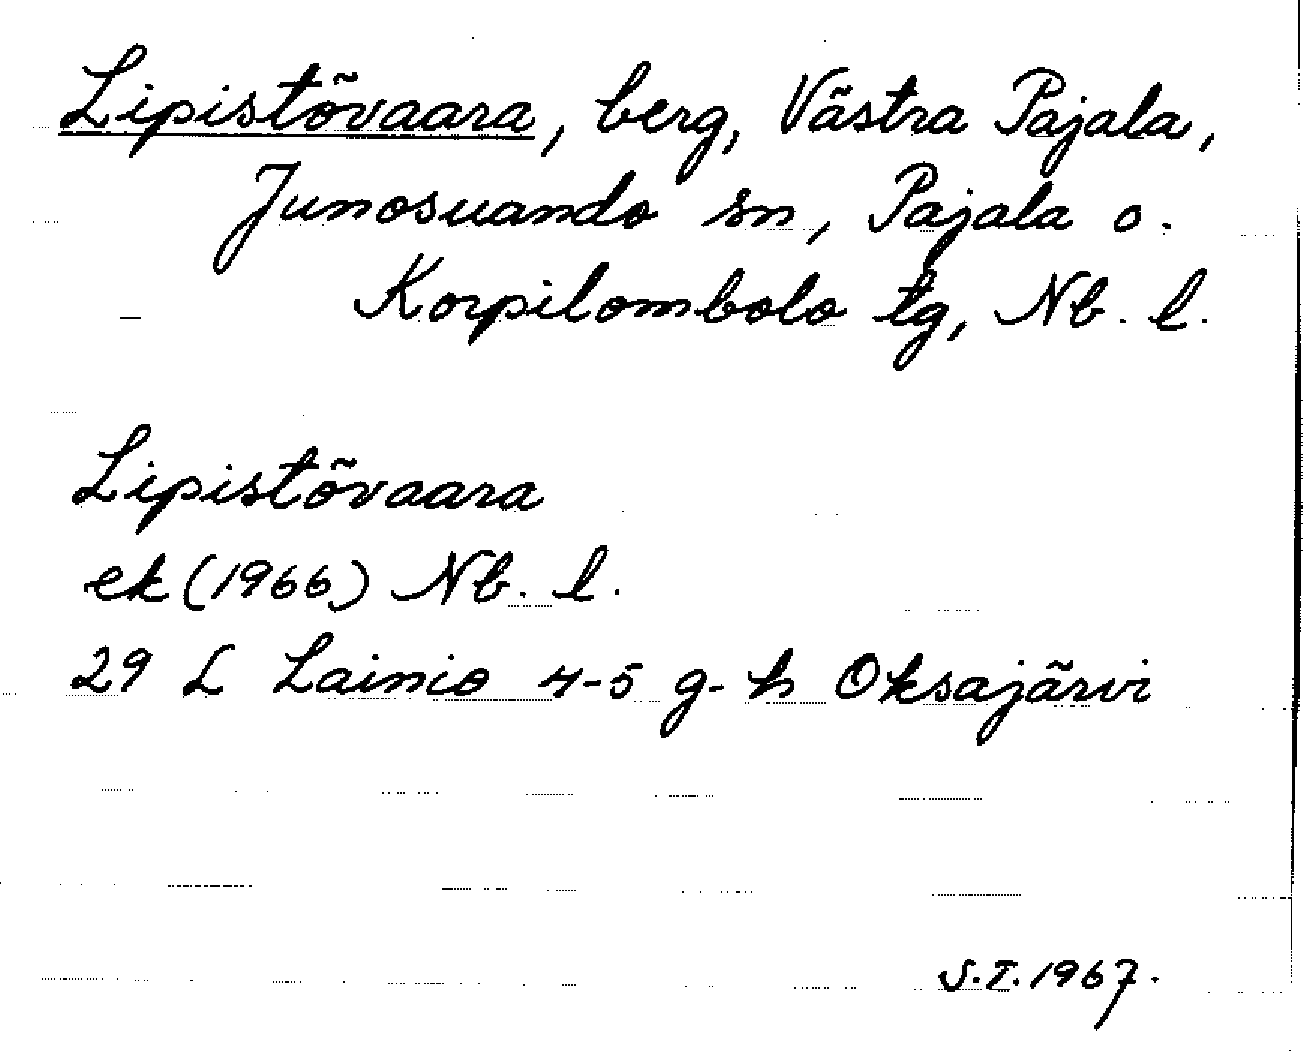 Lipistõvaara, berg, Västra Pajala,
Junosuando sn, Pajala o.
Korpilombolo tg, Nb. l.
Lipistõvaara
ek (1966) Nb. l.
29 L Lainio 4-5 g-h Oksajärvi
S.I. 1967.